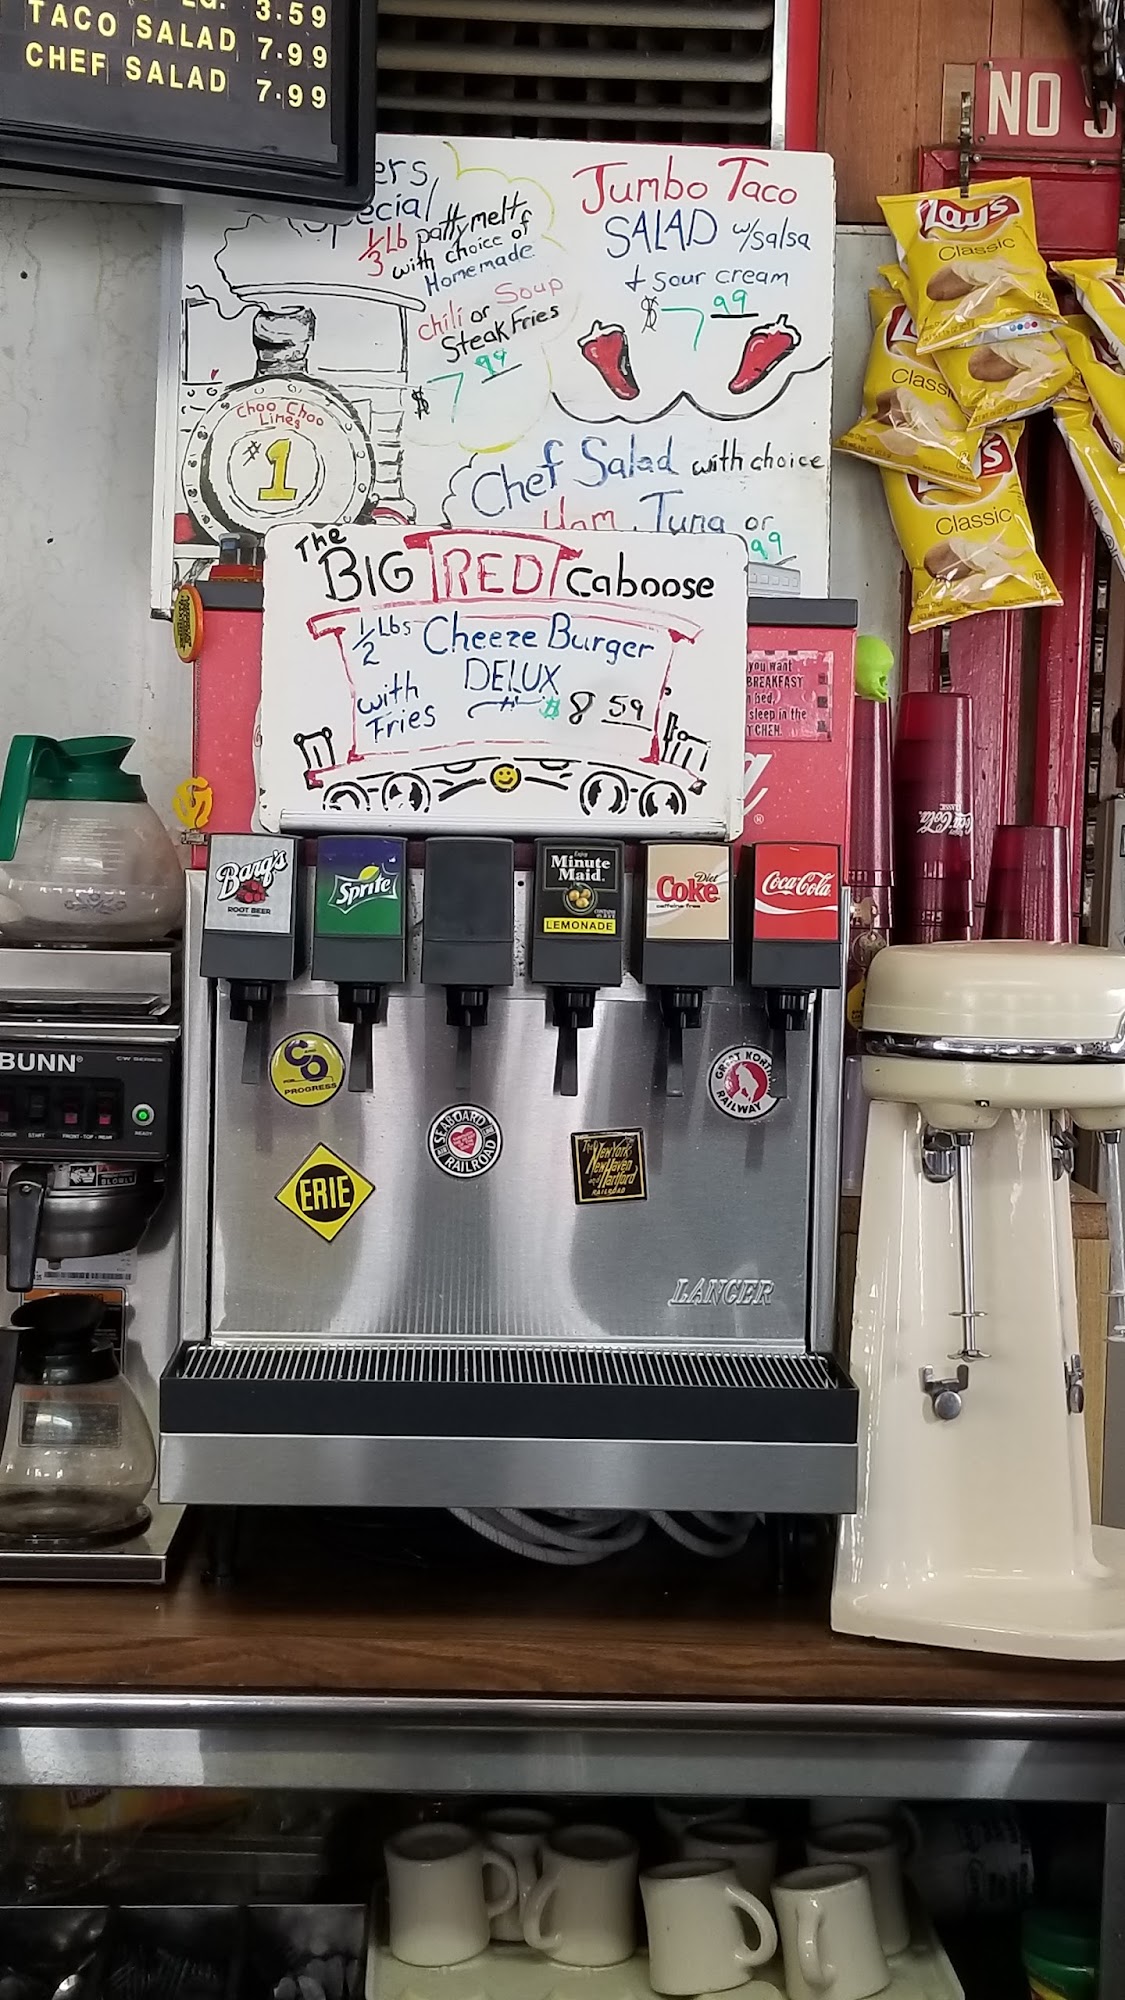 3.59
TACO SALAD 7.99
CHEF SALAD 7.99
NO
ers
Special
1/3 Lb pattymelt
with choice of
Homemade
chili or Soup
Steak Fries
$7.99
Jumbo Taco
SALAD w/salsa
+ sour cream
$7.99
Choo Choo
Lines
#1
Chef Salad with choice
Ham, Tuna or
99
Lay's
Classic
Classic
Classic
The
BIG RED Caboose
1/2 Lbs Cheeze Burger
DELUX
with
Fries
$8 59
you want
BREAKFAST
bed,
sleep in the
Coca-Cola
Barq's
ROOT BEER
Sprite
Enjoy
Minute
Maid
LEMONADE
Diet
Coke
caffeine free
Coca-Cola
BUNN®
CW SERIES
START
READY
SLOWLY
C&O
FOR
PROGRESS
GREAT NORTH
RAILWAY
SEABOARD
RAILROAD
ERIE
The New York
New Haven
and Hartford
RAILROAD
LANCER